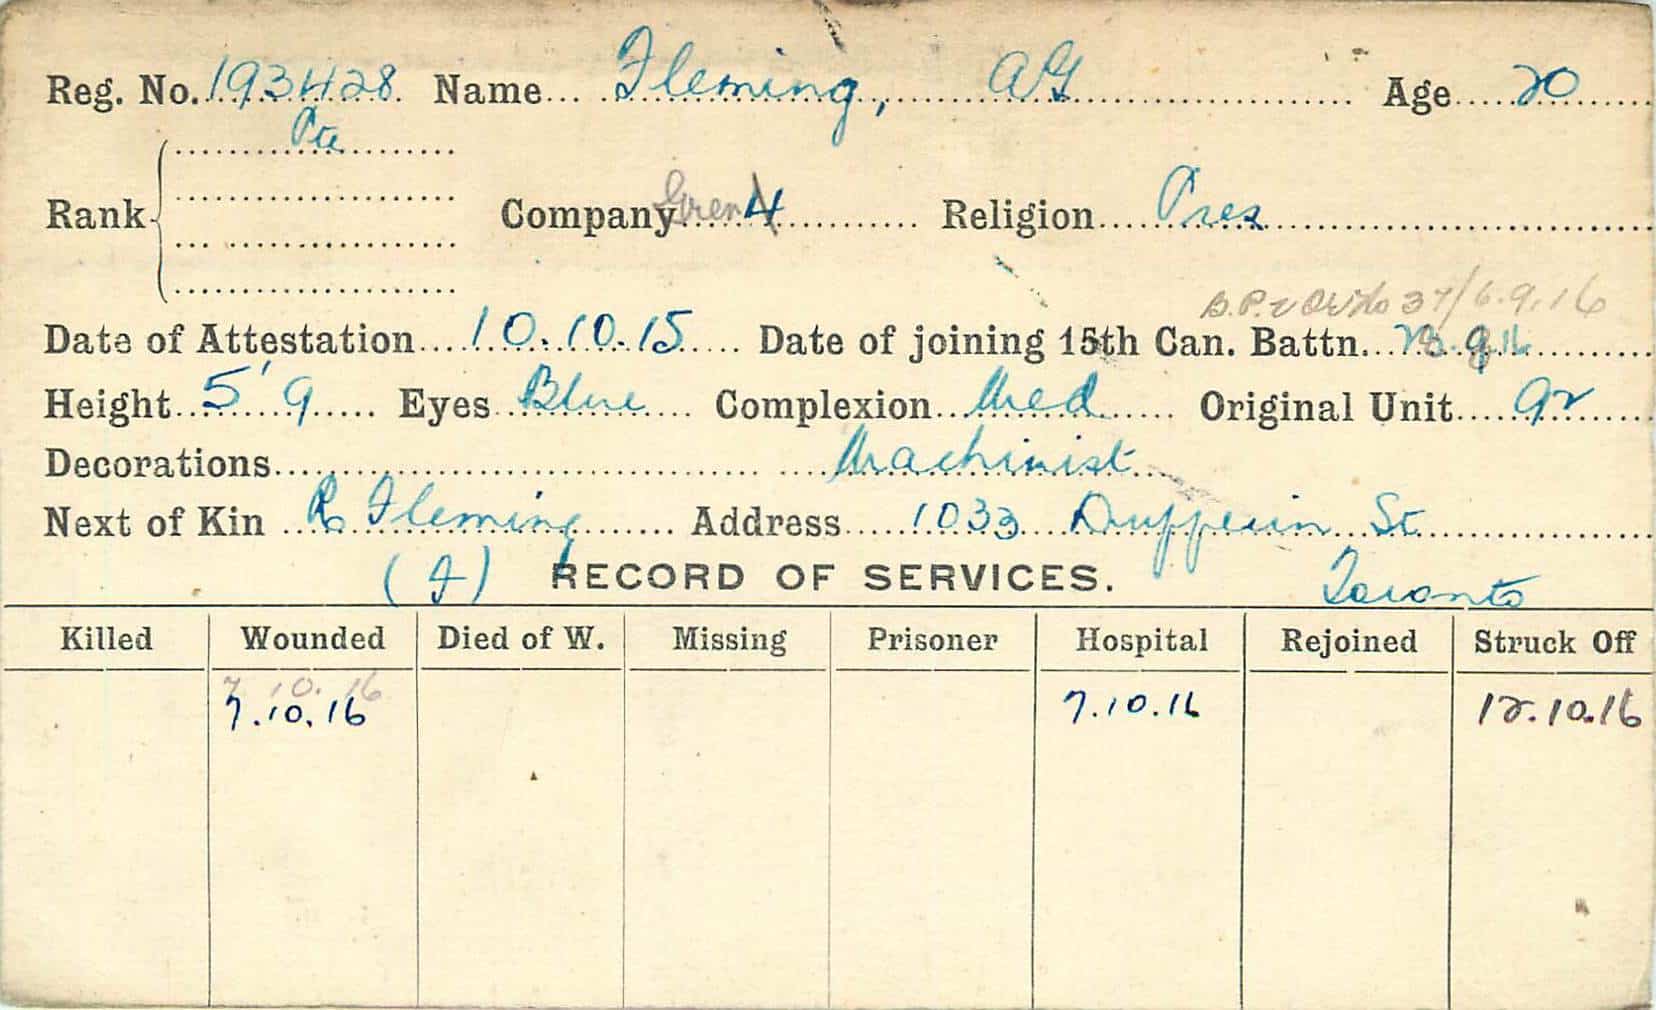 Reg. No. 193428 Name Fleming, AG Age 20
Pte
Rank Company 4 Religion Pres
37/6.9.16
Date of Attestation 10.10.15 Date of joining 15th Can. Battn. 9.16
Height 5' 9 Eyes Blue Complexion Med Original Unit 92
Decorations Machinist
Next of Kin R Fleming Address 1033 Dufferin St
(F) RECORD OF SERVICES. Toronto
Killed Wounded Died of W. Missing Prisoner Hospital Rejoined Struck Off
7.10.16
7.10.16 7.10.16 12.10.16